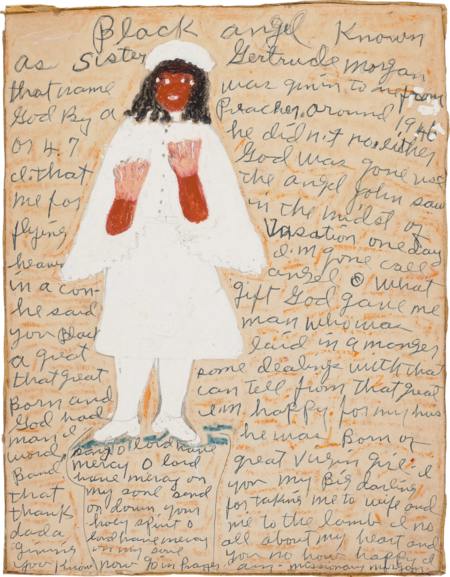 Black angel Known
as Sister Gertrude morgan
that name was givin to m from
God By a Preacher, around 1946
or 47 he did n.t no either
d. that God was gone use
me for the angel John saw
flying in the midst of
heaven
in a con- Vasation one day
he said i.m gone call
you Black angel O what
a great gift God gave me
that great man who was
Born and laid in a manger
God had some dealings with that
man i can tell from that great
word, i.m happy for my hus
Band he was Born of
that great Virgin Girl i
thank you my Big darling
dada for taking me to wife and
giving me to the lamb i no
you know all about my heart and
you no how happy i
am - missionary morgan
sang O lord have
mercy O lord
have mercy on
my soul send
on down your
holy spirit O
lord have mercy
on my soul
now go in Prayer